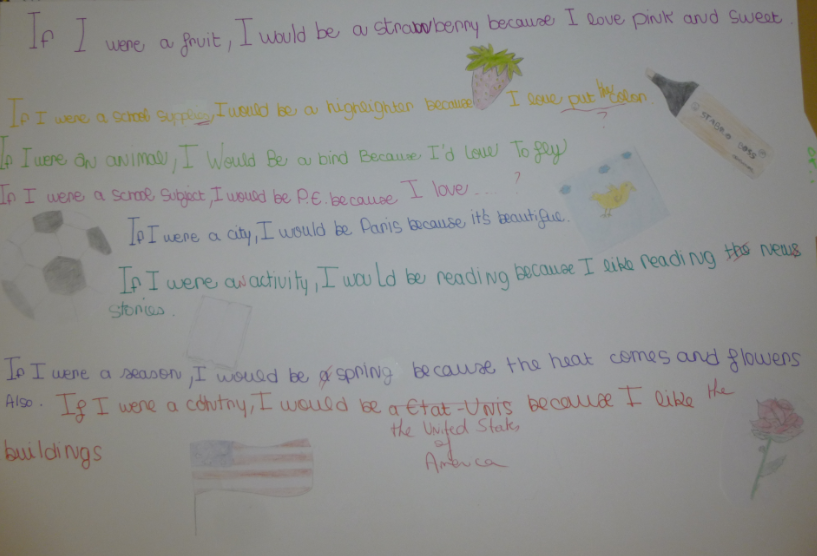 If I were a fruit, I would be a strawberry because I love pink and sweet.
If I were a school supplies, I would be a highlighter because I love put the color.
?
If I were an animal, I Would Be a bird Because I'd love To fly
If I were a school subject, I would be P.E. because I love... ?
If I were a city, I would be Paris because it's beautiful.
If I were an activity, I would be reading because I like reading the news
stories.
If I were a season, I would be a spring because the heat comes and flowers
Also. If I were a country, I would be a Etat-Unis because I like the
the United States
of
America
buildings